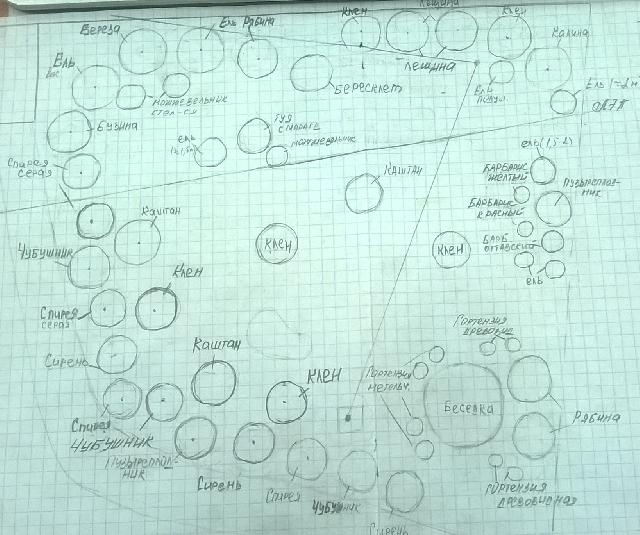 Клен
Лещина
Клен
Ель Рябина
Береза
Калина
Ель
Лещина
Бересклет
Ель
Ель 1-2м
можжевельник
Бузина
Туя
смарагд
можжевельник
ель
ель (1,5-2)
Спирея
серая
Каштан
Барбарис
желтый
Пузыреплод-
ник
Барбарис
красный
Каштан
Клен
Клен
Барб
оттавский
Чубушник
Клен
ель
Спирея
серая
Гортензия
древовид
Каштан
Сирень
Клен
Гортензия
метельч.
Беседка
Рябина
Спирея
Чубушник
Пузыреплод-
ник
Сирень
Спирея
Чубушник
Гортензия
древовидная
Сирень